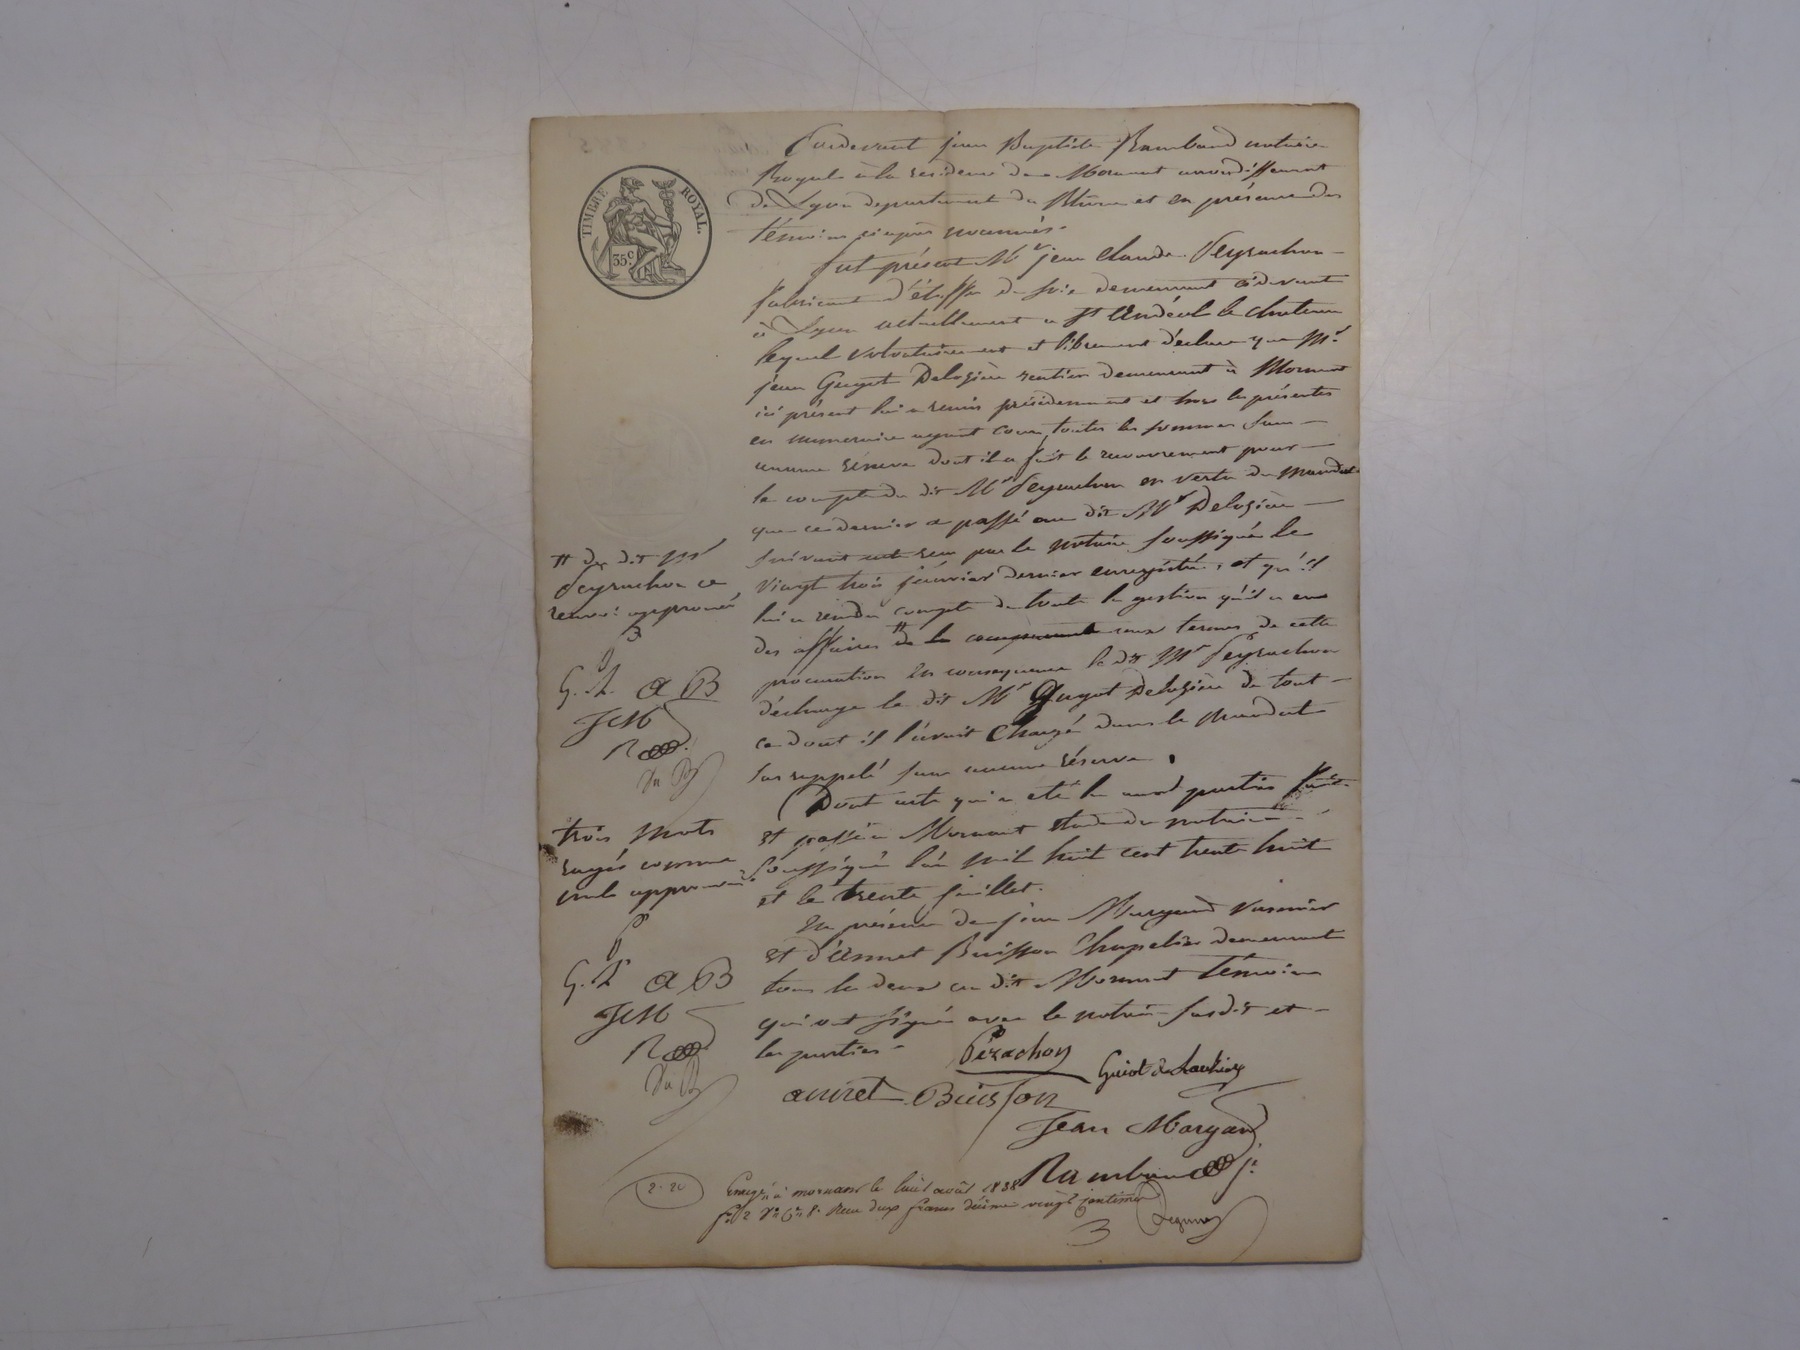 TIMBRE ROYAL.
35c.
Pardevant jean Baptiste Rambaud notaire
Royal à la residence de Mornant arrondissement
de Lyon departement du Rhône et en présence des
témoins ci après nommés.
fut présent Mr jean Claude Peyrachon
fabricant d'étoffes de soie demeurant cidevant
à Lyon actuellement à St Andéol le chateau
lequel volontairement et librement déclare que Mr
jean Guyot Delozière rentier demeurant à Mornant
ici présent lui a remis précédemment et hors les présentes
en numeraire ayant cours, toutes les sommes sans
aucune réserve dont il a fait le recouvrement pour
le compte du dit Mr Peyrachon en vertu du mandat
que ce dernier a passé au dit Mr Delozière
suivant acte reçu par le notaire soussigné le
vingt trois janvier dernier enregistré, et qu'il
lui a rendu compte de toute la gestion qu'il a eue
des affaires # de la aux termes de cette
procuration En consequence le dit Mr Peyrachon
décharge le dit Mr Guyot Delozière de tout
ce dont il l'avait Chargé dans le mandat
sus rappelé sans aucune réserve.
Dont acte qui a eté lu aux parties fait
et passé à Mornant étude du notaire
soussigné l'an mil huit cent trente huit
et le trente juillet.
En présence de jean Margand
et d'Annet Buisson Chapelier demeurant
tous les deux au dit Mornant témoins
qui ont signé avec le notaire susdit et
les parties.
# du dit Mr
Peyrachon ce
renvoi approuvé
G. L. A B
JM
R
trois mots
rayés comme
nuls approuvés
P
G. L A B
JM
R
Pérachon
Guiot de
annet Buisson
Jean Margand
Rambaud
2-20
Enregé à mornant le huit août 1838
fo 12 Vo Ce 8. Reçu deux francs décime vingt centimes